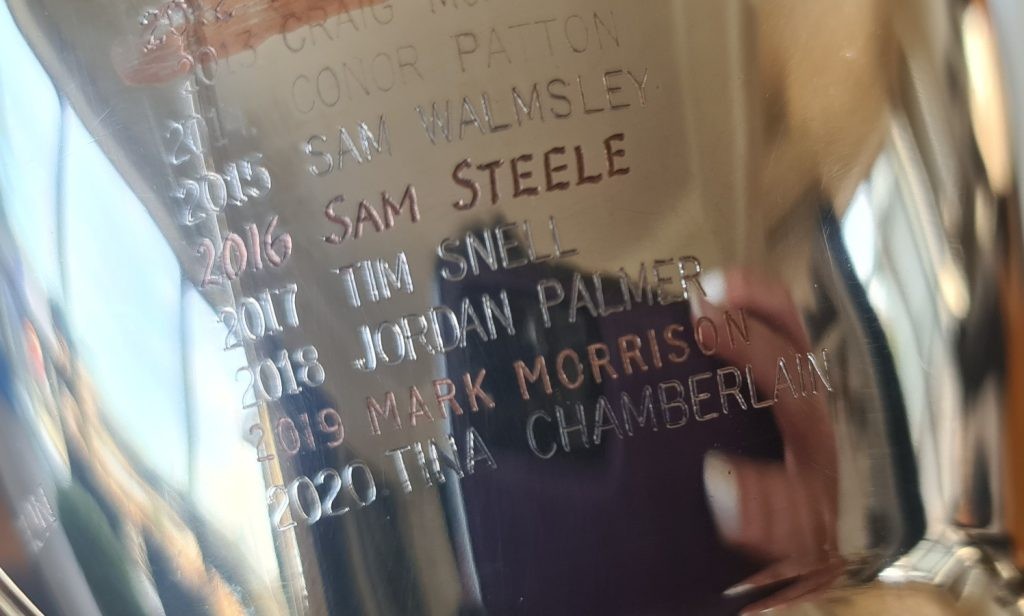 2012
2013 CRAIG
CONOR PATTON
2015 SAM WALMSLEY
2016 SAM STEELE
2017 TIM SNELL
2018 JORDAN PALMER
2019 MARK MORRISON
2020 TINA CHAMBERLAIN